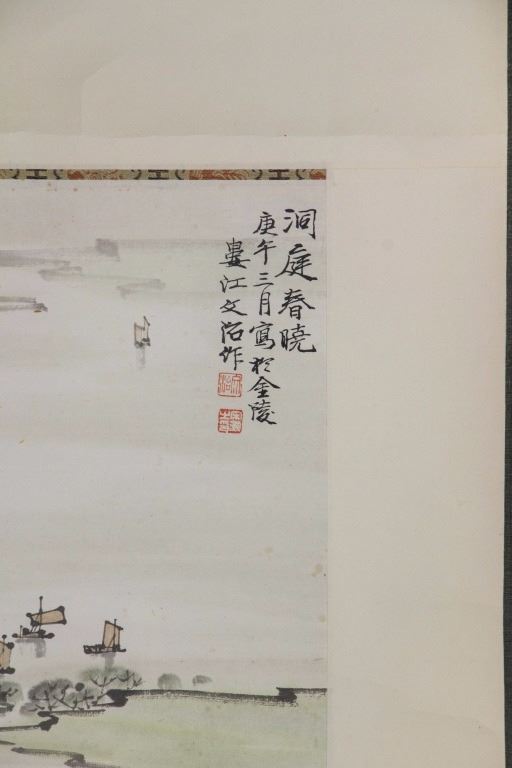 洞庭春曉
庚午三月寫於金陵
婁江文治作